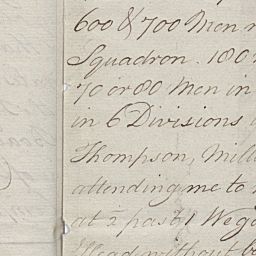 600 & 700 Men
Squadron. 180
70 or 80 Men in
in 6 Divisions
Thompson, Mill
attending me to
at ½ past 1 We go
Head without b